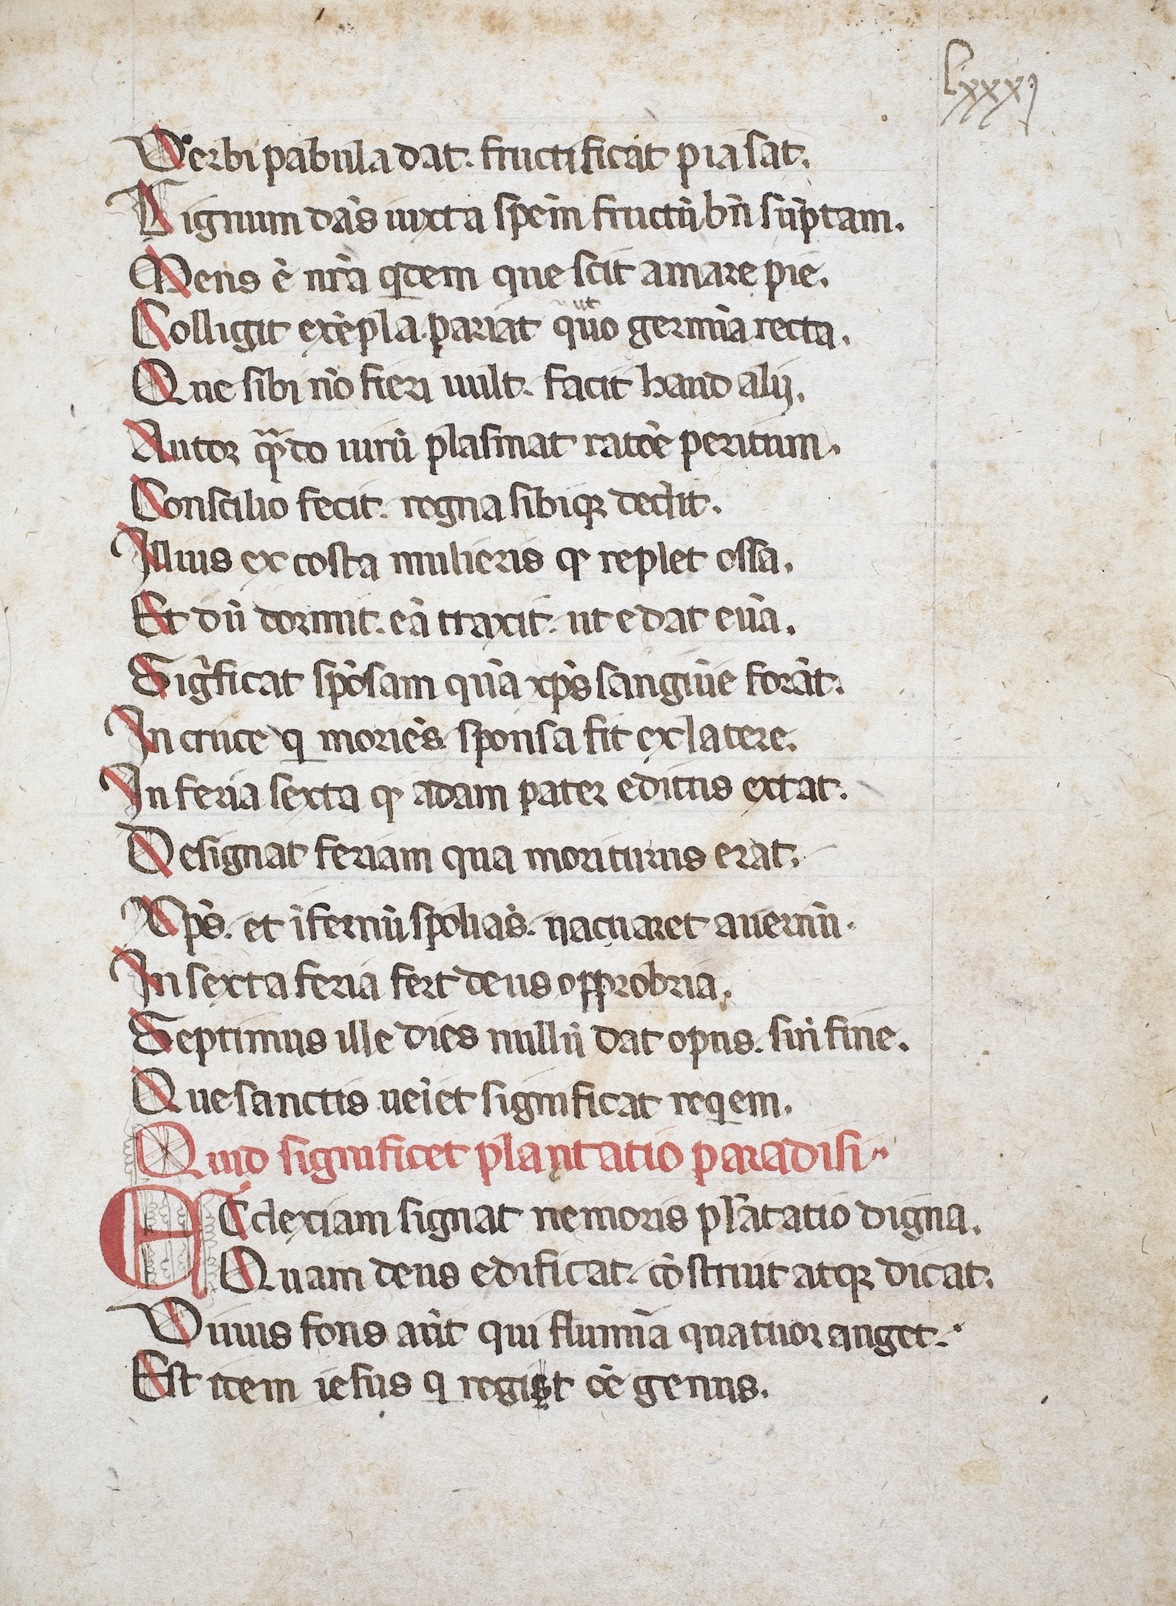 lxxxj
Verbi pabula dat. fructificat pia sat.
Lignum dãs iuxta spem̃ fructũ bñ sũptam.
Mens ẽ nrã qdem que scit amare pie.
Colligit exẽpla pariat quo ut germĩa recta.
Que sibi nõ fieri uult. facit haud alij.
Autor qñdo uirũ plasmat ratõe peritum.
Conscilio fecit. regna sibiqꝫ dedit.
Illius ex costa mulieris qꝫ replet ossa.
Et dũ dormit. eã traxit. ut edat euã.
Sigñficat spõsam quã xp̃s sanguĩe forãt.
In cruce q moriẽs. sponsa fit ex latere.
In feria sexta qꝫ adam pater editus extat.
Designat feriam qua moriturus erat.
Xp̃s. et ĩfernũ spoliãs. uacuaret auernũ.
In sexta feria fert deus opprobria.
Septimus ille dies nullũ dat opus. siñ fine.
Que sanctis ueĩet significat reqem.
Quid significet plantatio paradisi
ECclexiam signat nemoris plãtatio digna.
Quam deus edificat. cõstruit atqꝫ dicat.
Viuus fons aũt qui flumĩa quatuor auget.
Est item iesus q regit õe genus.